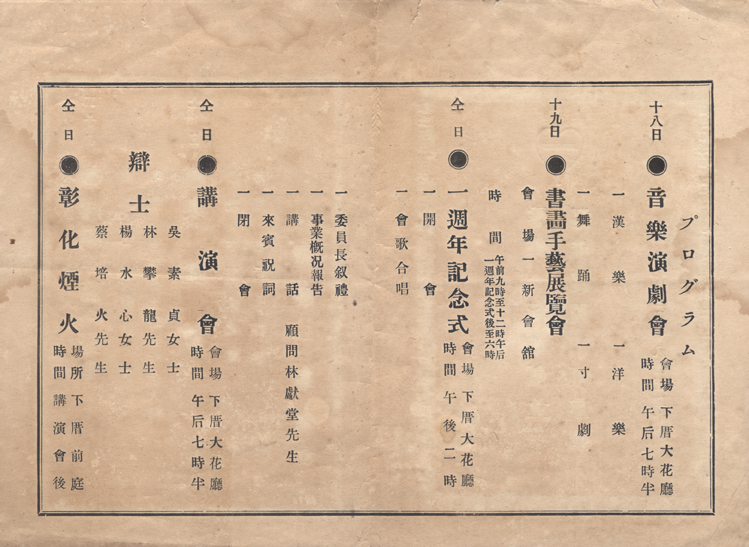 プログラム
十八日 ● 音樂演劇會
會場 下厝大花廳
時間 午后七時半
一漢樂 一洋樂
一舞踊 一寸劇
十九日 ● 書畵手藝展覽會
會場 一新會館
時間 午前九時至十二時午后
一週年記念式後至六時
仝日 ● 一週年記念式
會場 下厝大花廳
時間 午後二時
一開會
一會歌合唱
一委員長叙禮
一事業概況報告
一講話 顧問林獻堂先生
一來賓祝詞
一閉會
仝日 ● 講演會
會場 下厝大花廳
時間 午后七時半
辯士
吳素貞女士
林攀龍先生
楊水心女士
蔡培火先生
仝日 ● 彰化煙火
場所 下厝前庭
時間 講演會後